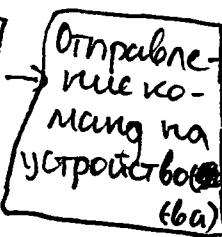 Отправле-
ние ко-
манд на
устройство
(ва)